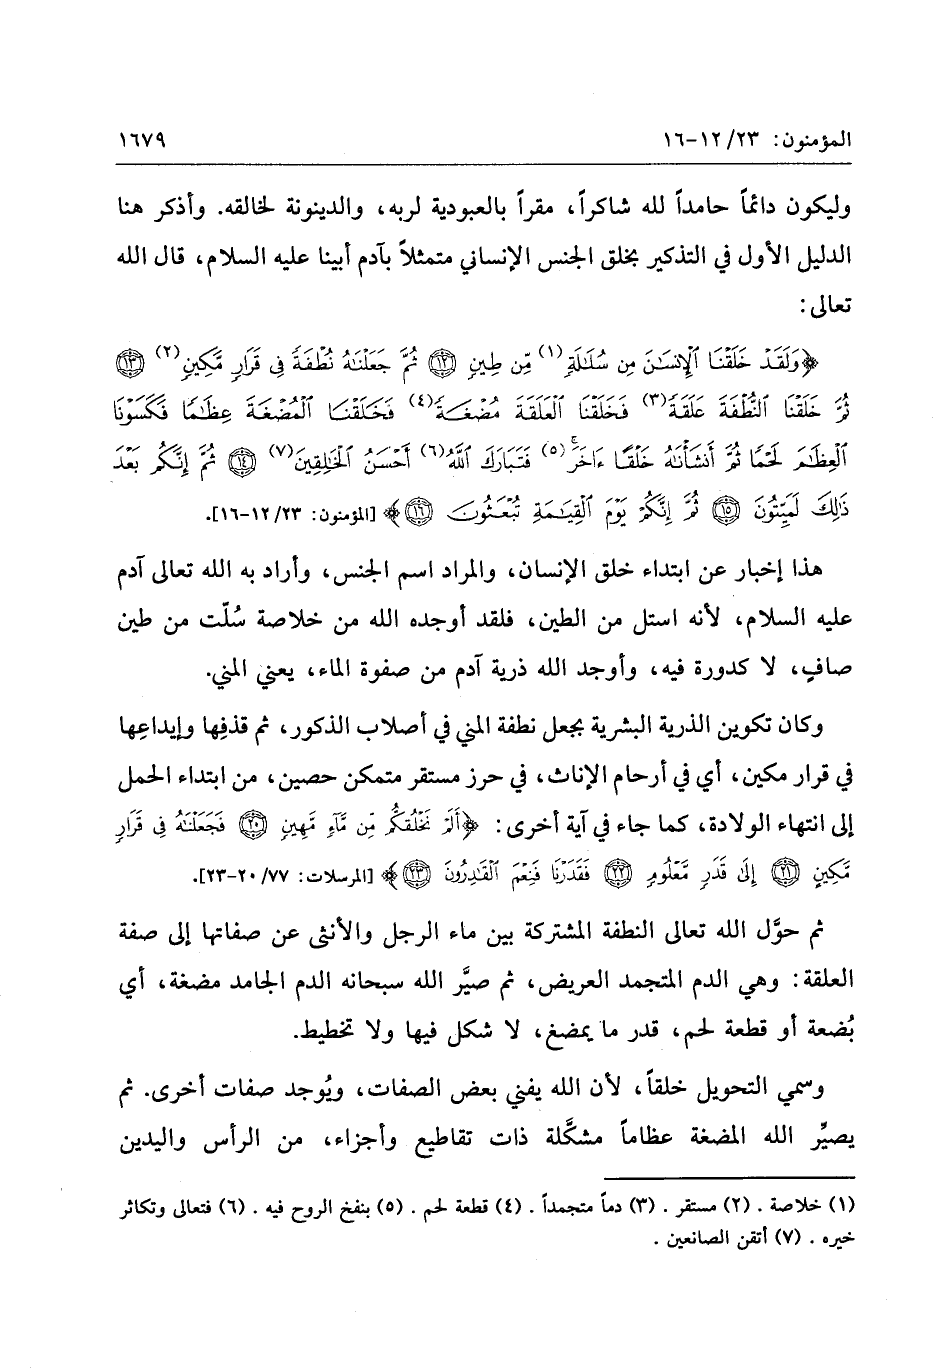 المؤمنون: ٢٣/ ١٢-١٦ ١٦٧٩
وليكون دائماً حامداً لله شاكراً، مقراً بالعبودية لربه، والدينونة لخالقه. وأذكر هنا
الدليل الأول في التذكير بخلق الجنس الإنساني متمثلاً بآدم أبينا عليه السلام، قال الله
تعالى:
﴿وَلَقَدْ خَلَقْنَا ٱلْإِنسَٰنَ مِن سُلَٰلَةٍ(١) مِّن طِينٍ ١٢ ثُمَّ جَعَلْنَٰهُ نُطْفَةً فِى قَرَارٍ مَّكِينٍ(٢) ١٣
ثُمَّ خَلَقْنَا ٱلنُّطْفَةَ عَلَقَةً(٣) فَخَلَقْنَا ٱلْعَلَقَةَ مُضْغَةً(٤) فَخَلَقْنَا ٱلْمُضْغَةَ عِظَٰمًا فَكَسَوْنَا
ٱلْعِظَٰمَ لَحْمًا ثُمَّ أَنشَأْنَٰهُ خَلْقًا ءَاخَرَ(٥) فَتَبَارَكَ ٱللَّهُ(٦) أَحْسَنُ ٱلْخَٰلِقِينَ(٧) ١٤ ثُمَّ إِنَّكُم بَعْدَ
ذَٰلِكَ لَمَيِّتُونَ ١٥ ثُمَّ إِنَّكُمْ يَوْمَ ٱلْقِيَٰمَةِ تُبْعَثُونَ ١٦﴾ [المؤمنون: ٢٣/ ١٢-١٦].
هذا إخبار عن ابتداء خلق الإنسان، والمراد اسم الجنس، وأراد به الله تعالى آدم
عليه السلام، لأنه استل من الطين، فلقد أوجده الله من خلاصة سُلّت من طين
صافٍ، لا كدورة فيه، وأوجد الله ذرية آدم من صفوة الماء، يعني المني.
وكان تكوين الذرية البشرية بجعل نطفة المني في أصلاب الذكور، ثم قذفِها وإيداعِها
في قرار مكين، أي في أرحام الإناث، في حرز مستقر متمكن حصين، من ابتداء الحمل
إلى انتهاء الولادة، كما جاء في آية أخرى: ﴿أَلَمْ نَخْلُقكُّم مِّن مَّآءٍ مَّهِينٍ ٢٠ فَجَعَلْنَٰهُ فِى قَرَارٍ
مَّكِينٍ ٢١ إِلَىٰ قَدَرٍ مَّعْلُومٍ ٢٢ فَقَدَرْنَا فَنِعْمَ ٱلْقَٰدِرُونَ ٢٣﴾ [المرسلات: ٧٧/ ٢٠-٢٣].
ثم حوَّل الله تعالى النطفة المشتركة بين ماء الرجل والأنثى عن صفاتها إلى صفة
العلقة: وهي الدم المتجمد العريض، ثم صيَّر الله سبحانه الدم الجامد مضغة، أي
بُضعة أو قطعة لحم، قدر ما يمضغ، لا شكل فيها ولا تخطيط.
وسمي التحويل خلقاً، لأن الله يفني بعض الصفات، ويُوجد صفات أخرى. ثم
يصيِّر الله المضغة عظاماً مشكَّلة ذات تقاطيع وأجزاء، من الرأس واليدين
(١) خلاصة . (٢) مستقر . (٣) دماً متجمداً . (٤) قطعة لحم . (٥) بنفخ الروح فيه . (٦) فتعالى وتكاثر
خيره . (٧) أتقن الصانعين .